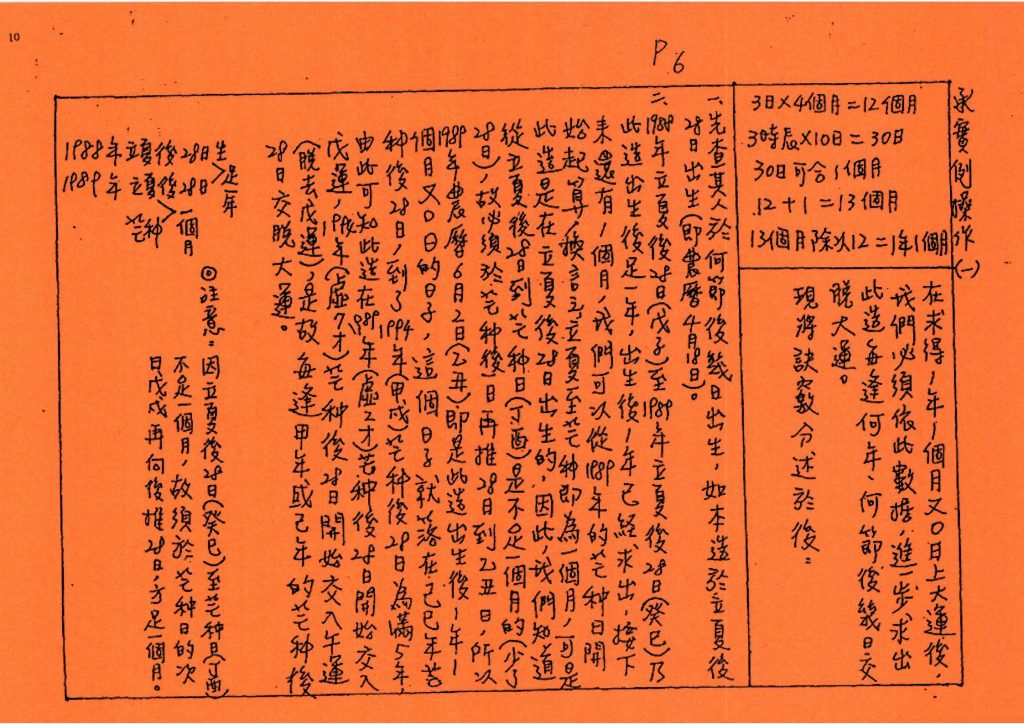 10
P6
承實例操作(一)
3日×4個月=12個月
3時辰×10日=30日
30日可合1個月
12+1=13個月
13個月除以12=1年1個月
在求得1年1個月又0日上大運後,
我們必須依此數據,進一步求出
此造每逢何年、何節後幾日交
脫大運。
現將訣竅分述於後:
一、先查其人於何節後幾日出生,如本造於立夏後
28日出生(即農曆4月18日)。
二、1988年立夏後28日(戊子)至1989年立夏後28日(癸巳)乃
此造出生後足一年,出生後1年已經求出,接下
來還有1個月,我們可以從1989年的芒種日開
始起算,換言之,立夏至芒種即為一個月,可是
此造是在立夏後28日出生的,因此,我們知道
從立夏後28日到芒種日(丁酉)是不足一個月的(少了
28日),故必須於芒種後一日再推28日到乙丑日,所以
1989年農曆6月2日(乙丑)即是此造出生後1年1
個月又0日的日子,這個日子就落在己巳年芒
種後28日,到了1994年(甲戌)芒種後28日為滿5年,
由此可知此造在1989年(虛2才)芒種後28日開始交入
戊運,1994年(虛7才)芒種後28日開始交入午運
(脫去戊運),是故每逢甲年或己年的芒種後
28日交脫大運。
◎註意:因立夏後28日(癸巳)至芒種日(丁酉)
不足一個月,故須於芒種日的次
日戊戌再向後推28日,方足一個月。
1988年立夏後28日生
1989年立夏後28日
>足一年
芒種
>一個月